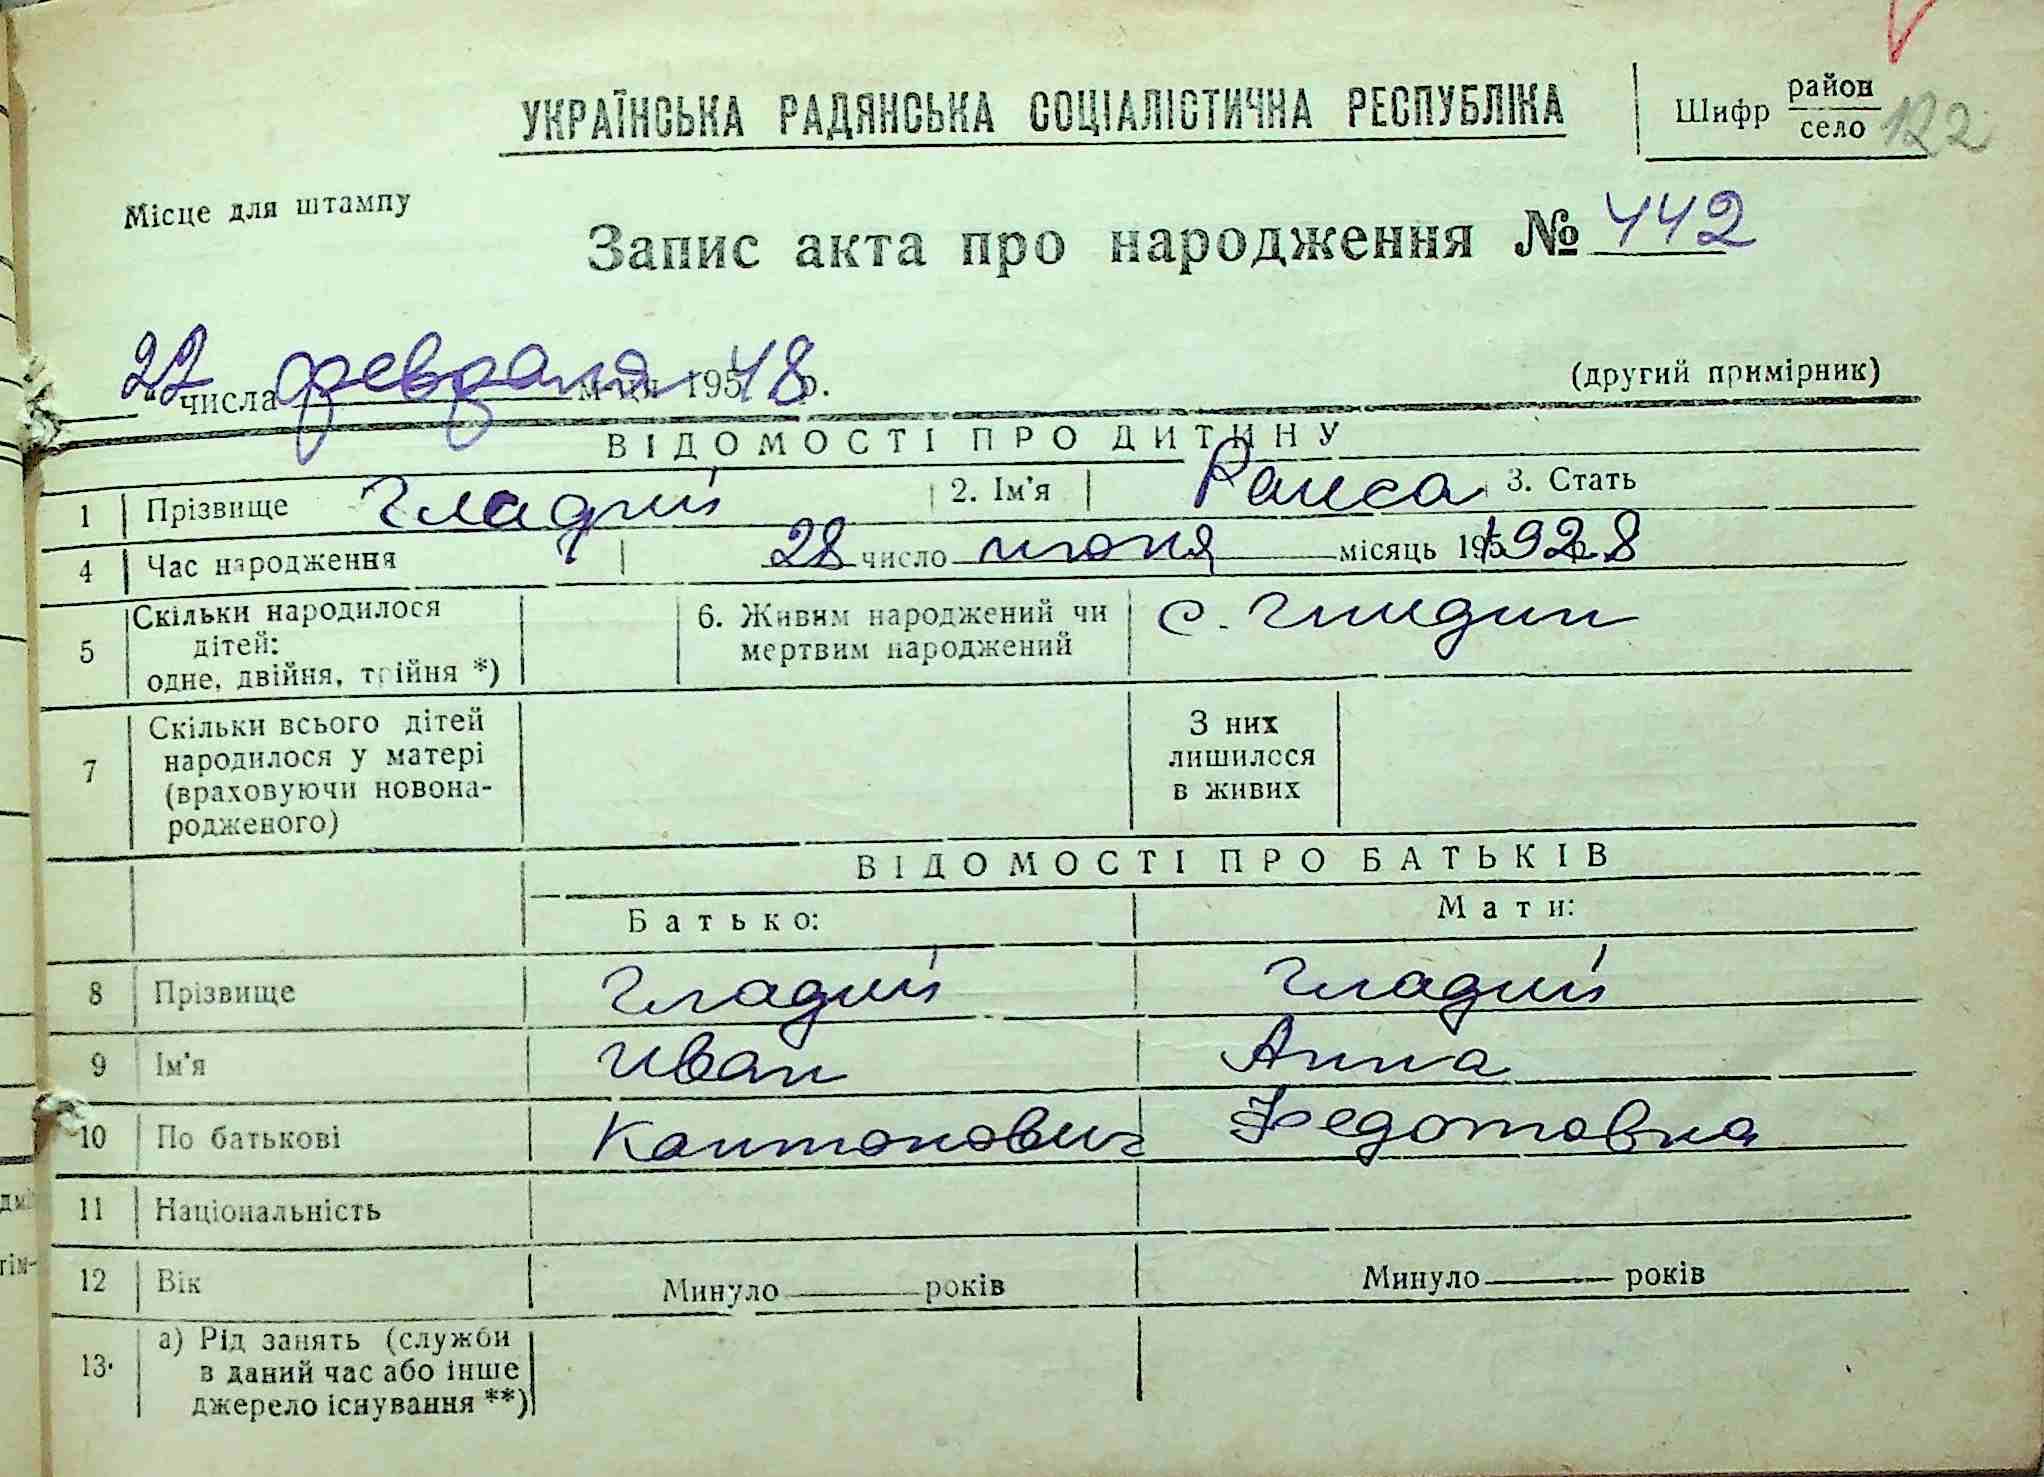 УКРАЇНСЬКА РАДЯНСЬКА СОЦІАЛІСТИЧНА РЕСПУБЛІКА
Шифр район
село 122
Місце для штампу
Запис акта про народження № 442
22 числа февраля м-ця 1948 р.
(другий примірник)
ВІДОМОСТІ ПРО ДИТИНУ
1 Прізвище Гладий 2. Ім'я Раиса 3. Стать
4 Час народження 28 число июня місяць 1928
5 Скільки народилося дітей: одне, двійня, трійня *) 6. Живим народжений чи мертвим народжений с. Гнидин
7 Скільки всього дітей народилося у матері (враховуючи новонародженого) З них лишилося в живих
ВІДОМОСТІ ПРО БАТЬКІВ
Батько: Мати:
8 Прізвище Гладий Гладий
9 Ім'я Иван Анна
10 По батькові Каптонович Федотовна
11 Національність
12 Вік Минуло років Минуло років
13. а) Рід занять (служби в даний час або інше джерело існування **)